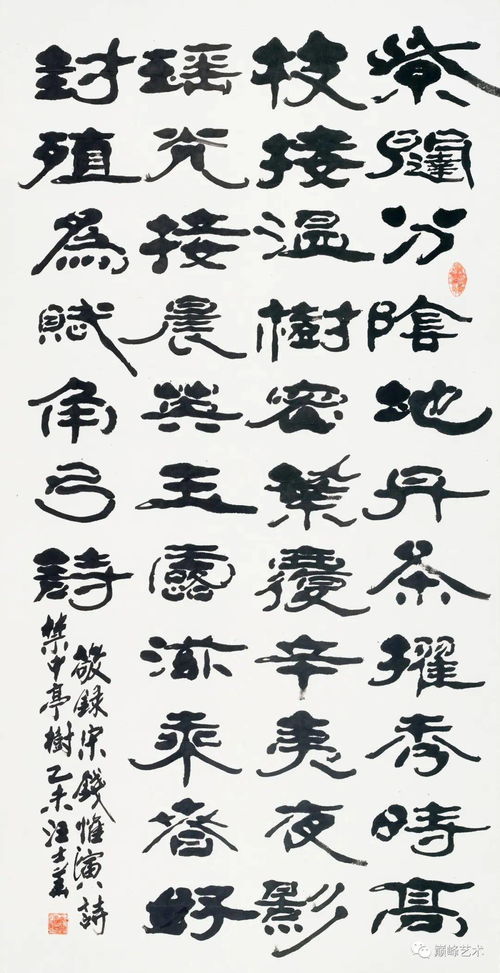 紫闥分陰地丹条擢秀時高
枝接温樹密葉覆辛夷夜影
瑶光接晨英玉露滋乘春好
封殖為賦角弓詩
敬録宋錢惟演詩
禁中亭樹乙未汪士
巅峰艺术